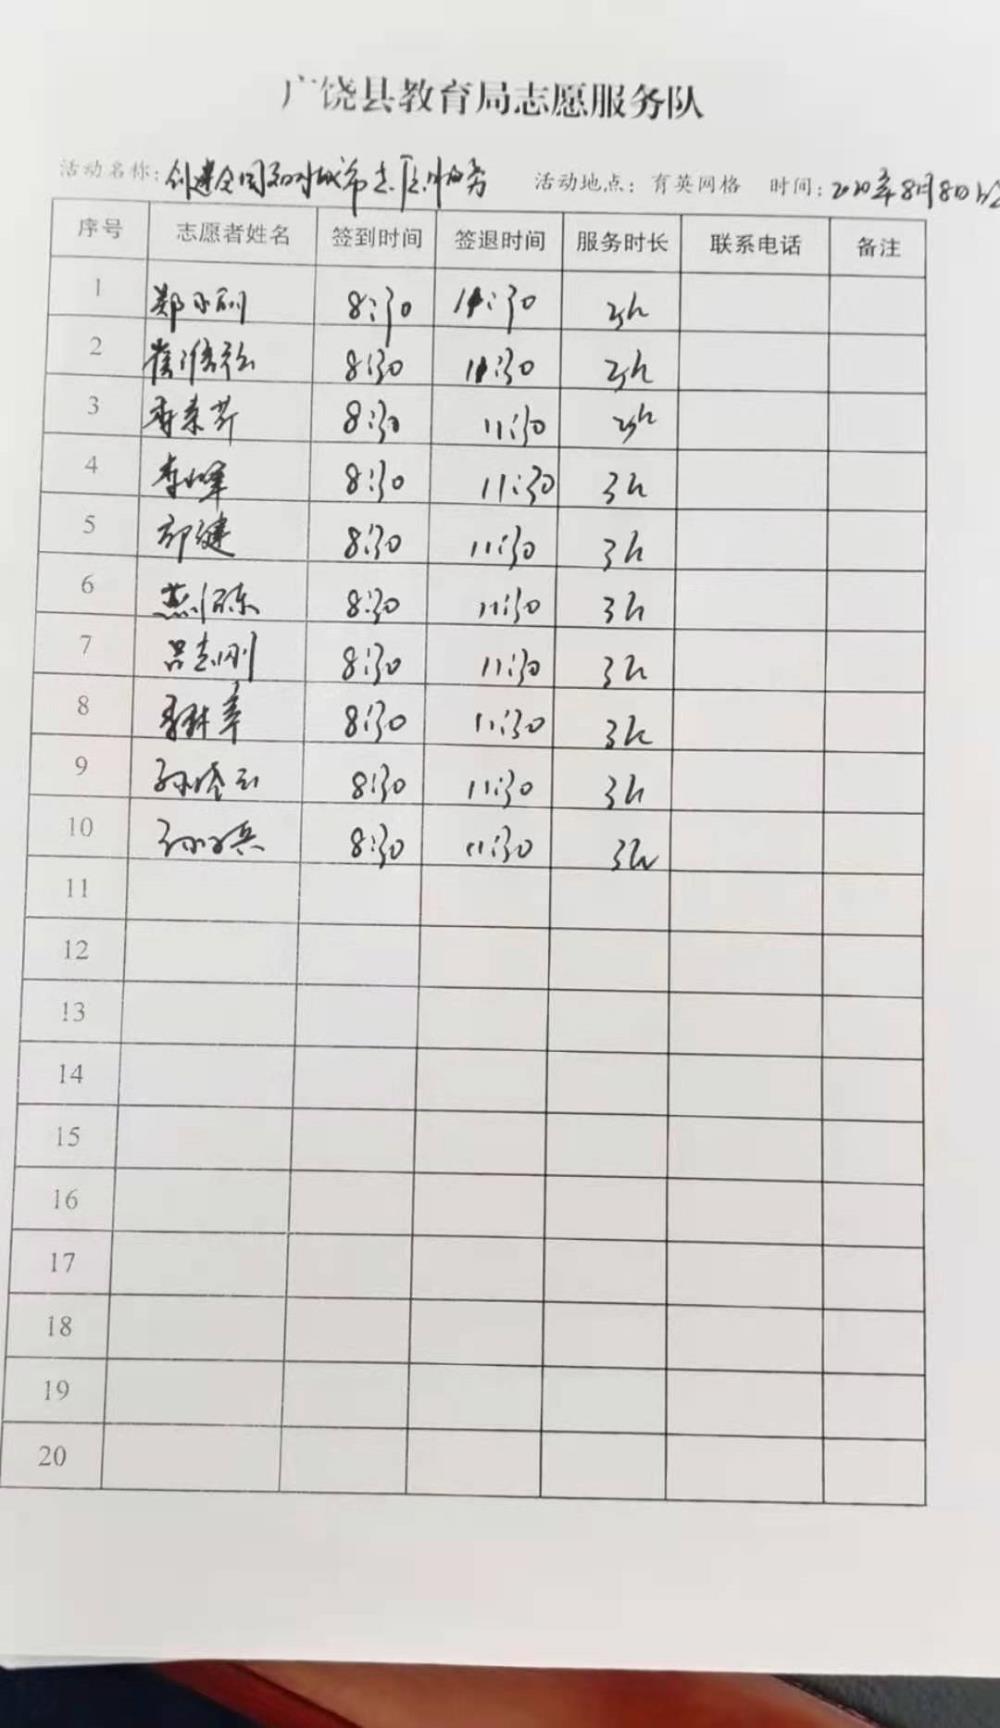 广饶县教育局志愿服务队
活动名称：创建全国文明城市志愿服务 活动地点：育英网格 时间：2020年8月8日
序号 志愿者姓名 签到时间 签退时间 服务时长 联系电话 备注
1 8:30 11:30 3h
2 8:30 11:30 3h
3 8:30 11:30 3h
4 李峰 8:30 11:30 3h
5 8:30 11:30 3h
6 8:30 11:30 3h
7 吕志刚 8:30 11:30 3h
8 8:30 11:30 3h
9 8:30 11:30 3h
10 8:30 11:30 3h
11
12
13
14
15
16
17
18
19
20